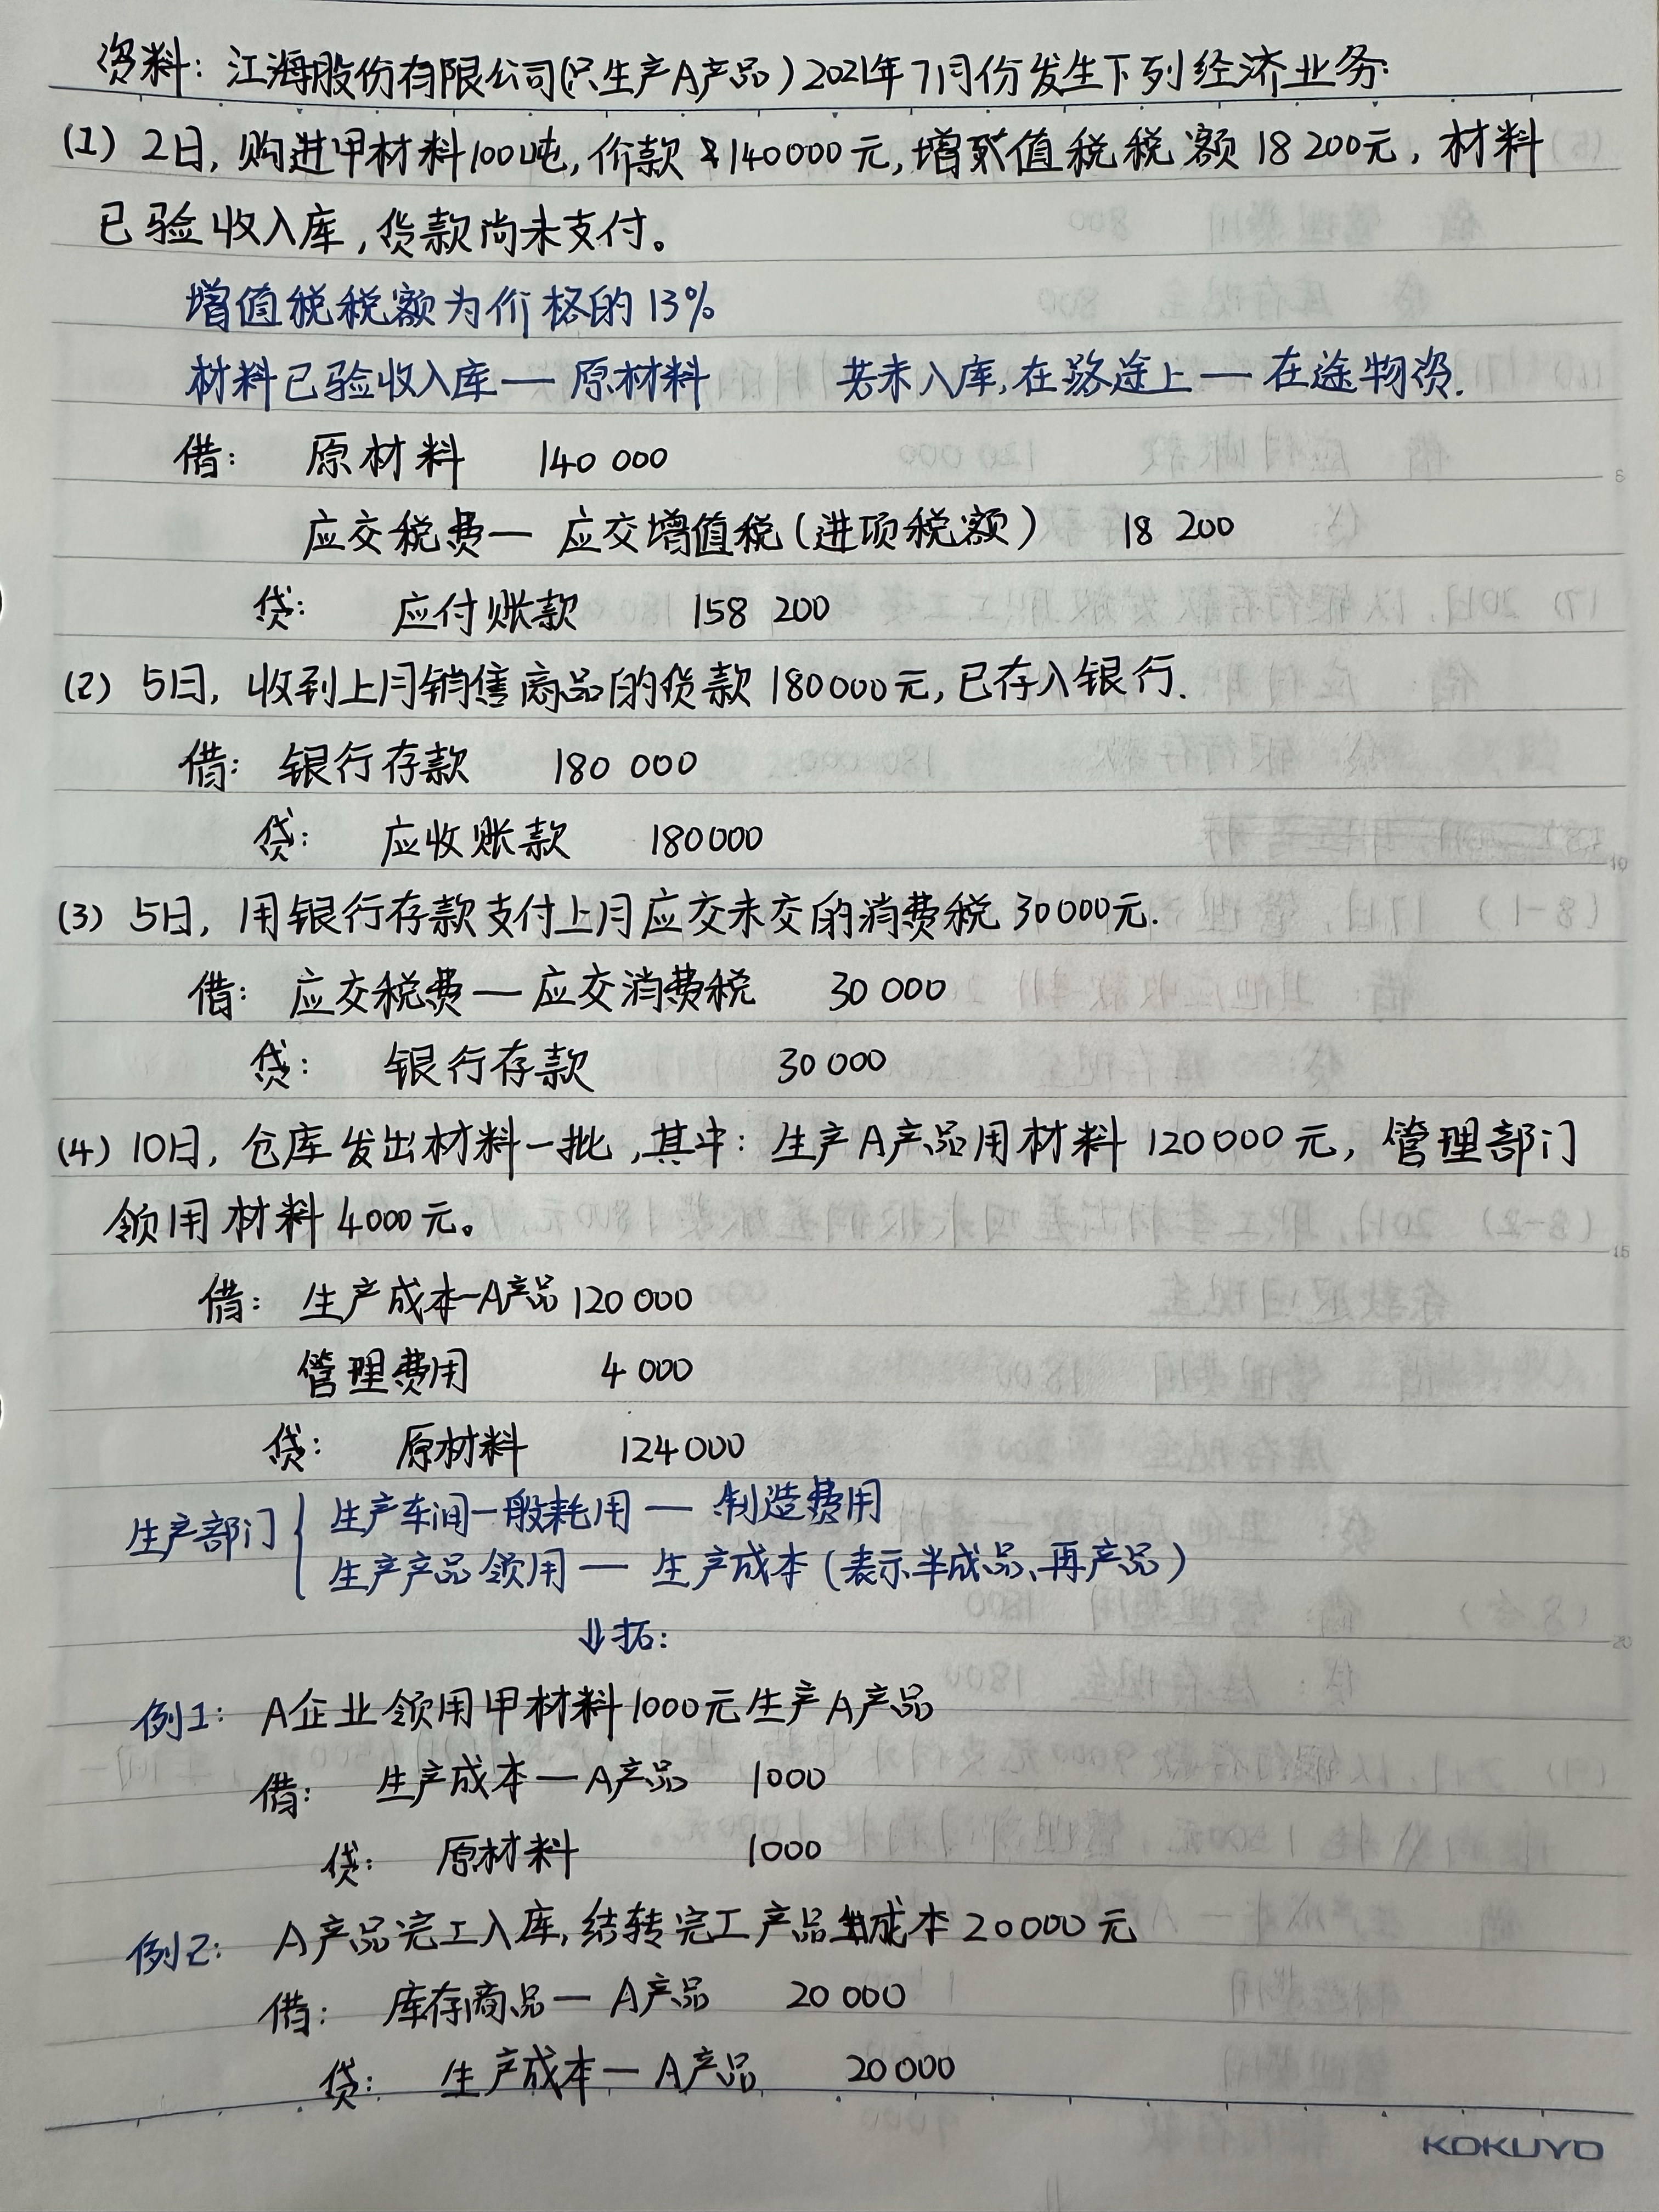 资料：江海股份有限公司(只生产A产品)2021年7月份发生下列经济业务：
(1) 2日，购进甲材料100吨，价款140000元，增值税税额18200元，材料
已验收入库，货款尚未支付。
增值税税额为价格的13%
材料已验收入库— 原材料 若未入库，在路途上— 在途物资.
借： 原材料 140 000
应交税费— 应交增值税(进项税额) 18 200
贷： 应付账款 158 200
(2) 5日，收到上月销售商品的货款180000元，已存入银行.
借： 银行存款 180 000
贷： 应收账款 180000
(3) 5日，用银行存款支付上月应交未交的消费税30000元.
借： 应交税费—应交消费税 30 000
贷： 银行存款 30 000
(4) 10日，仓库发出材料一批，其中：生产A产品用材料120000元，管理部门
领用材料4000元。
借： 生产成本-A产品 120 000
管理费用 4 000
贷： 原材料 124000
生产部门 { 生产车间一般耗用— 制造费用
生产产品领用— 生产成本(表示半成品、再产品)
↓拓：
例1： A企业领用甲材料1000元生产A产品
借： 生产成本—A产品 1000
贷： 原材料 1000
例2： A产品完工入库，结转完工产品成本20000元
借： 库存商品— A产品 20 000
贷： 生产成本— A产品 20000
KOKUYO